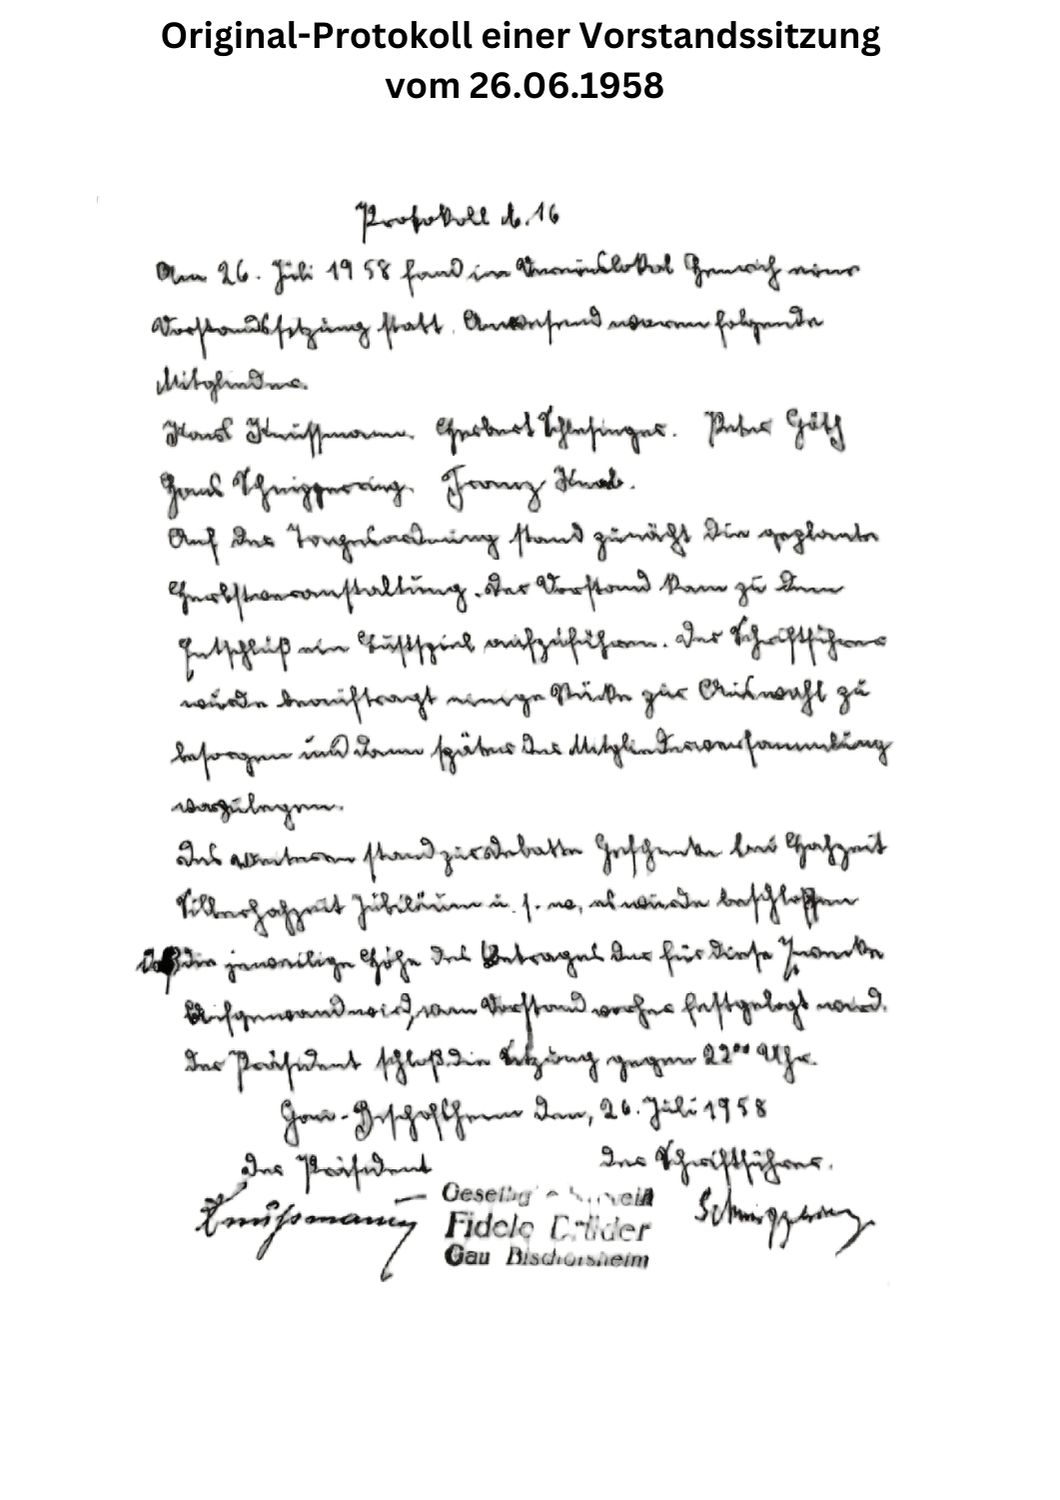 Original-Protokoll einer Vorstandssitzung
vom 26.06.1958
Protokoll d. 16
Am 26. Juli 1958 fand im Vereinslokal eine
Vorstandssitzung statt. Anwesend waren folgende
Mitglieder.
Hans Knussmann. Herbert Schlesinger. Peter Göth
Hans Schnippering. Franz Knab.
Auf der Tagesordnung stand zunächt die geplante
Herbstveranstaltung. Der Vorstand kam zu dem
Entschluß ein Lustspiel aufzuführen. Der Schriftführer
wurde beauftragt einige Stücke zur Auswahl zu
besorgen und dann später der Mitgliederversammlung
vorzulegen.
Des weiteren stand zur Debatte Geschenke bei Hohzeit
Silberhohzeit Jubiläum u. s. w, es wurde beschloßen
daß die jeweilige Höhe des Betrages der für diese Zwecke
Aufgewand wird, vom Vorstand vorher festgelegt wird.
Der Präsident schloß die Sitzung gegen 22°° Uhr.
Gau-Bischofsheim den, 26. Juli 1958
der Präsident der Schriftführer.
Knußmann Schnippering
Fidele Brüder
Gau Bischofsheim